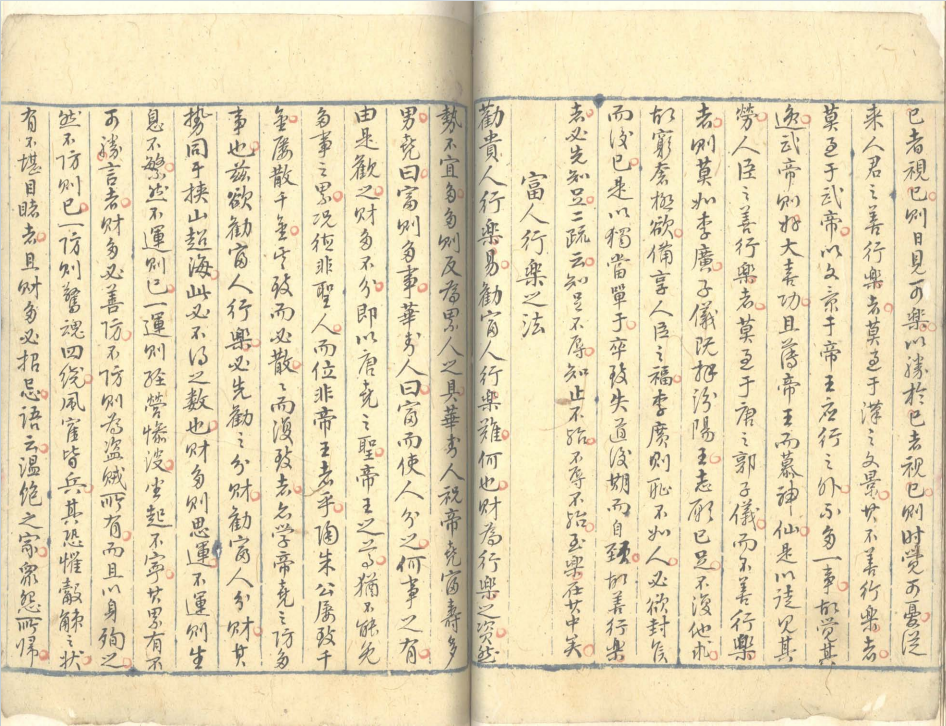 已者視已則日見可樂以勝於已者視已則时覺可憂從
来人君之善行樂者莫过于漢之文景其不善行樂者
莫过于武帝以文景于帝王应行之外不多一事故觉其
逸武帝則好大喜功且薄帝王而慕神仙是以徒見其
勞人臣之善行樂者莫过于唐之郭子儀而不善行樂
者則莫如李廣子儀既拜汾陽王志願已足不復他求
故窮奢極欲備享人臣之福李廣則耻不如人必欲封侯
而後已是以獨當單于卒致失道後期而自剄故善行樂
者必先知足二疏云知足不辱知止不殆不辱不殆至樂在其中矣
富人行樂之法
勸貴人行樂易勸富人行樂難何也财為行樂之资然
勢不宜多多則反為累人之具華封人祝帝堯富壽多
男堯曰富則多事華封人曰富而使人分之何事之有
由是觀之财多不分即以唐堯之聖帝王之尊猶不能免
多事之累况德非聖人而位非帝王者乎陶朱公屡致千
金屡散千金其致而必散々而復致者亦学帝堯之防多
事也兹欲勸富人行樂必先勸之分财勸富人分财其
势同于挟山超海此必不得之数也财多則思運不運則生
息不繁然不運則已一運則经营惨淡坐起不寧其累有不
可勝言者财多必善防不防則為盗贼所有而且以身殉之
然不防則已一防則驚魂四绕風雀皆兵其恐惧觳觫之状
有不堪目睹者且财多必招忌語云温飽之家衆怨所歸